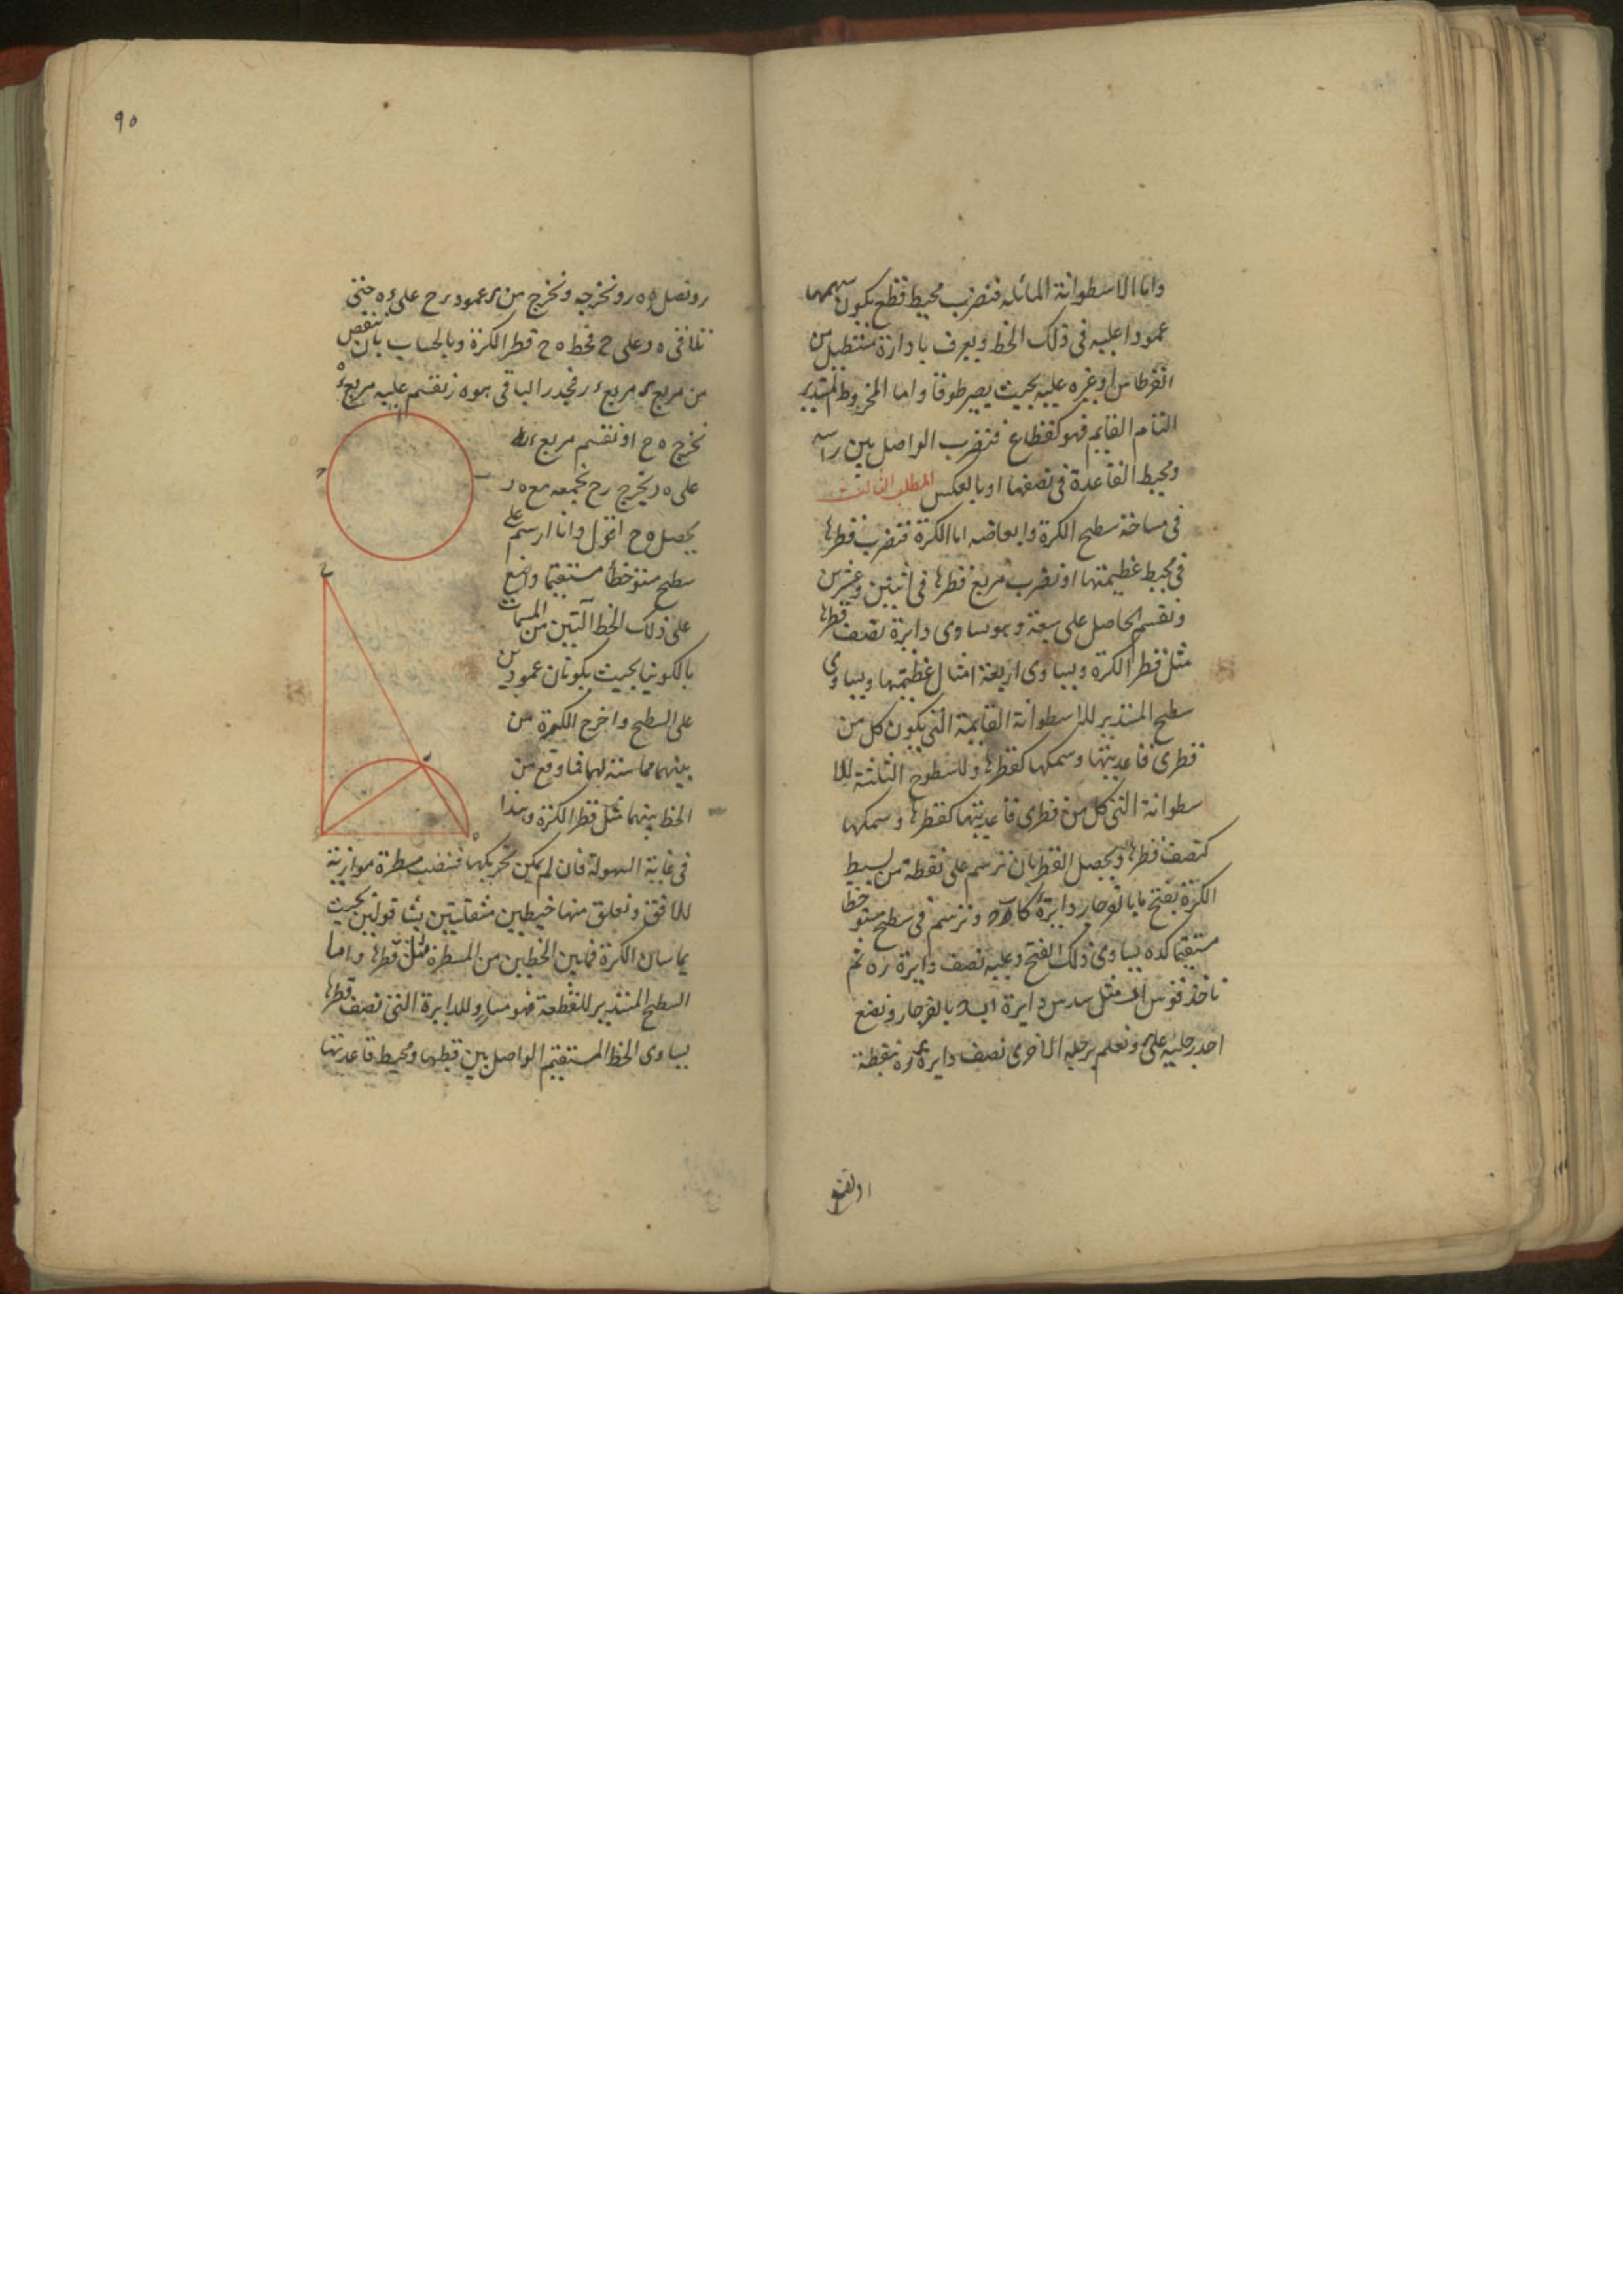 واما الاسطوانة المائله فنضرب محيط قطع يكون سهمها
عمودا عليه فى ذلك الخط ويعرف بادارة مستطيل من
القرطاس او غيره عليه بحيث يصير طوقا واما المخروط المستدير
التام القايم فهو كقطاع فنضرب الواصل بين راسه
ومحيط القاعدة فى نصفها او بالعكس المطلب الثالث
فى مساحة سطح الكرة وابعاضه اما الكرة فنضرب قطرها
فى محيط عظيمتها او نضرب مربع قطرها فى اثنين وعشرين
ونقسم الحاصل على سبعة وهو يساوى دايرة نصف قطرها
مثل قطر الكرة ويساوى اربعة امثال عظيمتها ويساوى
سطح المستدير للاسطوانة القايمة التى يكون كل من
قطرى قاعدتيها وسمكها كقطرها وللسطوح الثلثة للا
سطوانة التى كل من قطرى قاعدتيها كقطرها وسمكها
كنصف قطرها ويحصل القطر بان نرسم على نقطة من بسيط
الكرة بفتح ما بالفرجار دايرة ونرسم فى سطح مستو خطا
مستقيما كده يساوى ذلك الفتح وعليه نصف دايرة ره ثم
ناخذ قوس اب مثل سدس دايرة بالفرجار ونضع
احد رجليه على ونعلم برجله الاخرى نصف دايرة بنقطة
او نقسم
٩٠
ر ونصل ه ر ونخرجه ونخرج من عمود ح على حتى
تلاقى ه ر على ح فخط ه ح قطر الكرة وبالحساب بان ننقص
من مربع مربع ر فجذر الباقى هو ه ر نقسم عليه مربع
نخرج ه ح او نقسم مربع
على ه ر يخرج رح نجمعه مع ه ر
يحصل ه ح اقول وانا ارسم على
سطح مستو خطا مستقيما واضع
على ذلك الخط آلتين من
بالكونيا بحيث يكونان عمودين
على السطح واخرج الكرة من
بينهما مماسة لهما فما وقع من
الخط بينهما مثل قطر الكرة وهذا
فى غاية السهولة فان لم يمكن تحريكها فننصب مسطرة موازية
للافق ونعلق منها خيطين مثقلين بشاقولين بحيث
يماسان الكرة فما بين الخطين من المسطرة مثل قطرها واما
السطح المستدير للقطعة فهو مساو للدايرة التى نصف قطرها
يساوى الخط المستقيم الواصل بين قطبها ومحيط قاعدتها
ح
ر
ه